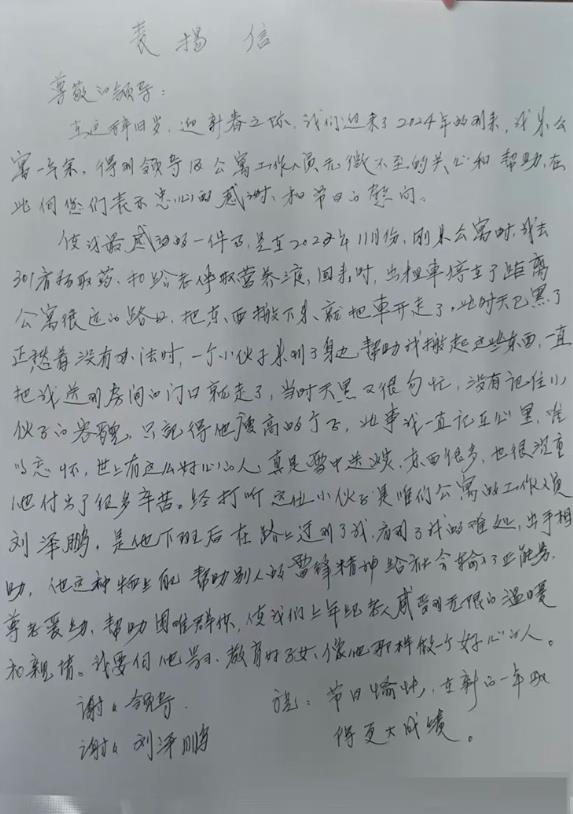 表扬信
尊敬的领导:
在这辞旧岁,迎新春之际,我们迎来了2024年的到来,我来公
寓一年余,得到领导及公寓工作人员无微不至的关心和帮助,在
此向您们表示忠心的感谢,和节日的慰问。
使我最感动的一件事,是在2022年11月份,刚来公寓时,我去
301看病取药、和给老伴取营养液,回来时,出租车停在了距离
公寓很远的路口,把东西搬下来,就把车开走了,此时天已黑了
正愁着没有办法时,一个小伙子来到了身边,帮助我搬起这些东西,一直
把我送到房间的门口就走了,当时天黑又很匆忙,没有记住小
伙子的容貌,只记得他瘦高的个子,此事我一直记在心里,难
以忘怀,世上有这么好心的人,真是雪中送炭,东西很多,也很沉重
他付出了很多辛苦。经打听这位小伙子是咱们公寓的工作人员
刘泽鹏,是他下班后在路上遇到了我,看到了我的难处,出手相
助,他这种帮助别人的雷锋精神给社会输了正能量,
尊老爱幼、帮助困难群体,使我们上年纪老人感受到无限的温暖
和亲情。我要向他学习、教育好子女,像他那样做一个好心的人。
谢谢领导. 祝:节日愉快,在新的一年取
谢谢刘泽鹏 得更大成绩。